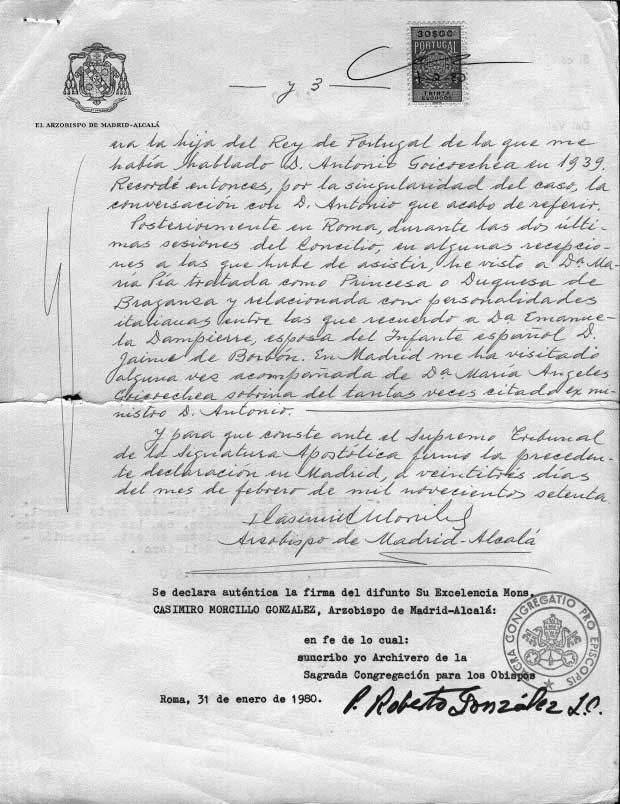 30$00
PORTUGAL
TRINTA
ESCUDOS
y 3
EL ARZOBISPO DE MADRID-ALCALÁ
era la hija del Rey de Portugal de la que me
había hablado D. Antonio Goicoechea en 1939.
Recordé entonces, por la singularidad del caso, la
conversación con D. Antonio que acabo de referir.
Posteriormente en Roma, durante las dos últi-
mas sesiones del Concilio, en algunas recepcio-
nes a las que hube de asistir, he visto a Dª Ma-
ría Pía tratada como Princesa o Duquesa de
Braganza y relacionada con personalidades
italianas entre las que recuerdo a Da Emanue-
la Dampierre, esposa del Infante español D.
Jaime de Borbón. En Madrid me ha visitado
alguna vez acompañada de Dª María Angeles
Goicoechea sobrina del tantas veces citado ex mi-
nistro D. Antonio.
Y para que conste ante el Supremo Tribunal
de la Signatura Apostólica firmo la preceden-
te declaración en Madrid, a veintitrés días
del mes de febrero de mil novecientos setenta.
+ Casimiro Morcillo
Arzobispo de Madrid-Alcalá
Se declara auténtica la firma del difunto Su Excelencia Mons.
CASIMIRO MORCILLO GONZALEZ, Arzobispo de Madrid-Alcalá:
en fe de lo cual:
suncribo yo Archivero de la
Sagrada Congregación para los Obispos
Roma, 31 de enero de 1980.
P. Roberto González L.C.
SACRA CONGREGATIO PRO EPISCOPIS